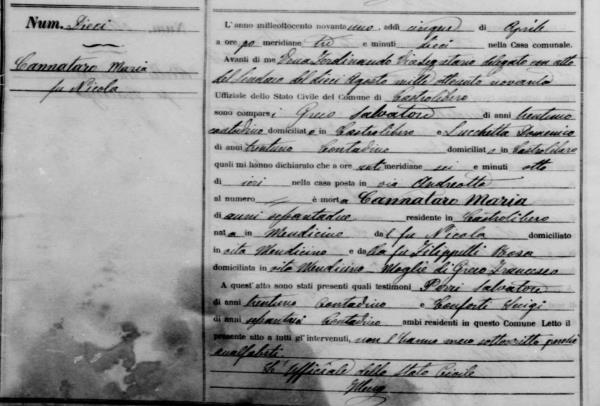 Num. Dieci
Cannataro Maria
fu Nicola
L'anno milleottocento novantauno, addì cinque di Aprile
a ore po meridiane tre e minuti dieci nella Casa comunale.
Avanti di me Ferdinando Segretario delegato con atto
del Sindaco del dieci Agosto mille ottocento novanta
Uffiziale dello Stato Civile del Comune di Castrolibero
sono comparsi Greco Salvatore di anni trentuno
contadino domiciliato in Castrolibero e Lucchetta Domenico
di anni trentuno Contadino domiciliato in Castrolibero
quali mi hanno dichiarato che a ore anti meridiane sei e minuti otto
di ieri nella casa posta in via Andreotta
al numero è morta Cannataro Maria
di anni settantadue residente in Castrolibero
nata in Mendicino dal fu Nicola domiciliato
in vita Mendicino e da la fu Filippelli Rosa
domiciliata in vita Mendicino Moglie di Greco Francesco
A quest'atto sono stati presenti quali testimoni Perri Salvatore
di anni trentuno Contadino e Conforti Luigi
di anni Contadino ambi residenti in questo Comune Letto il
presente atto a tutti gl' intervenuti, non l'hanno meco sottoscritto perchè
analfabeti.
L'Ufficiale dello Stato Civile